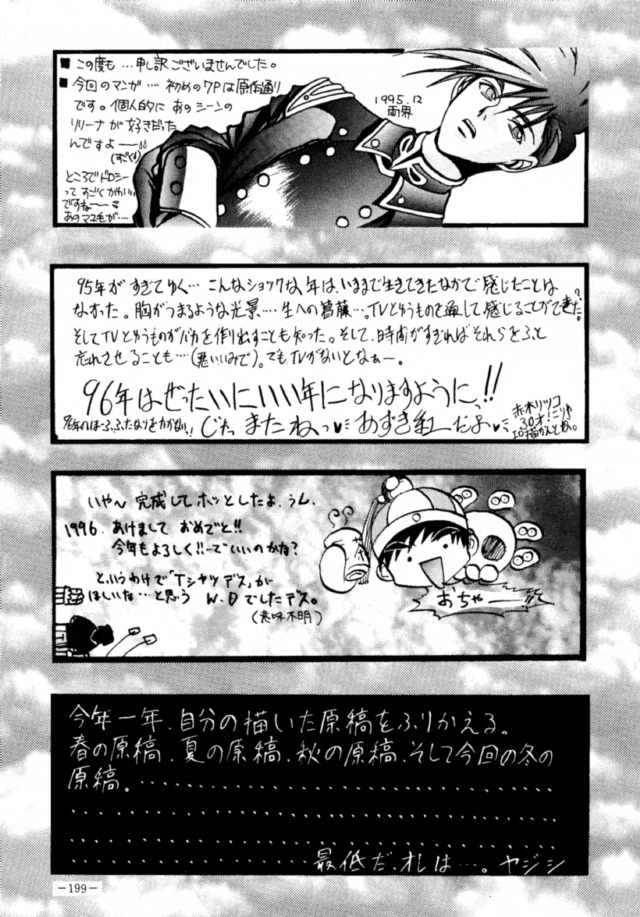 ■ この度も…申し訳ございませんでした。
■ 今回のマンガ… 初めの7Pは原作通り
です。個人的に あのシーンの
リリーナが好きだった
んですよ〜〜
ところでドロシー
って すごくかわいい
ですね〜〜
あのマユ毛が…
1995.12
両界
95年がすぎてゆく… こんなショックな年は、いままで生きてきたなかで感じたことは
なかった。胸がつまるような光景…. 生への葛藤…。TVというものを通して感じることができた。
そしてTVというものがバカを作り出すことも知った。そして、時間がすぎればそれらをふと
忘れさせることも…(悪いいみで)。でもTVがないとなぁー。
96年はぜったいにいい年になりますように!!
じゃっ またねっ♥ あずき紅だよ♥
赤木リツコ
30才!
いやー 完成してホッとしたよ、うん。
1996. あけまして おめでと!!
今年もよろしく!!-でいいのかな?
というわけで「Tシャツデス」が
ほしいな…と思う W.Dでしたデス。
(意味不明)
おちゃー!!
今年一年、自分の描いた原稿をふりかえる。
春の原稿、夏の原稿、秋の原稿、そして今回の冬の
原稿。・・・・・・・・・・・・・・・・・・・・・・・・・
・・・・・・・・・・・・・・・・・・・・・・・・・・・・
・・・・・・・・・・・・・・・・・・・・・・・・・・・・
・・・・・・・・・・・・・最低だ、オレは…。ヤジシ
−199−